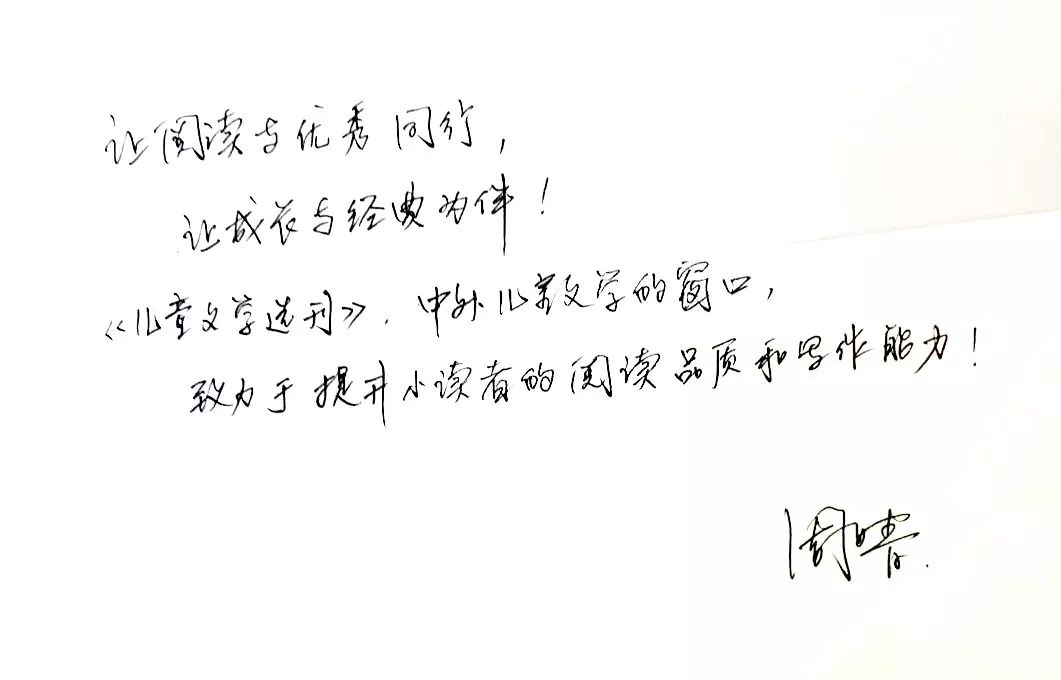 让阅读与优秀同行，
让成长与经典为伴！
《儿童文学选刊》，中外儿童文学的窗口，
致力于提升小读者的阅读品质和写作能力！
周晴